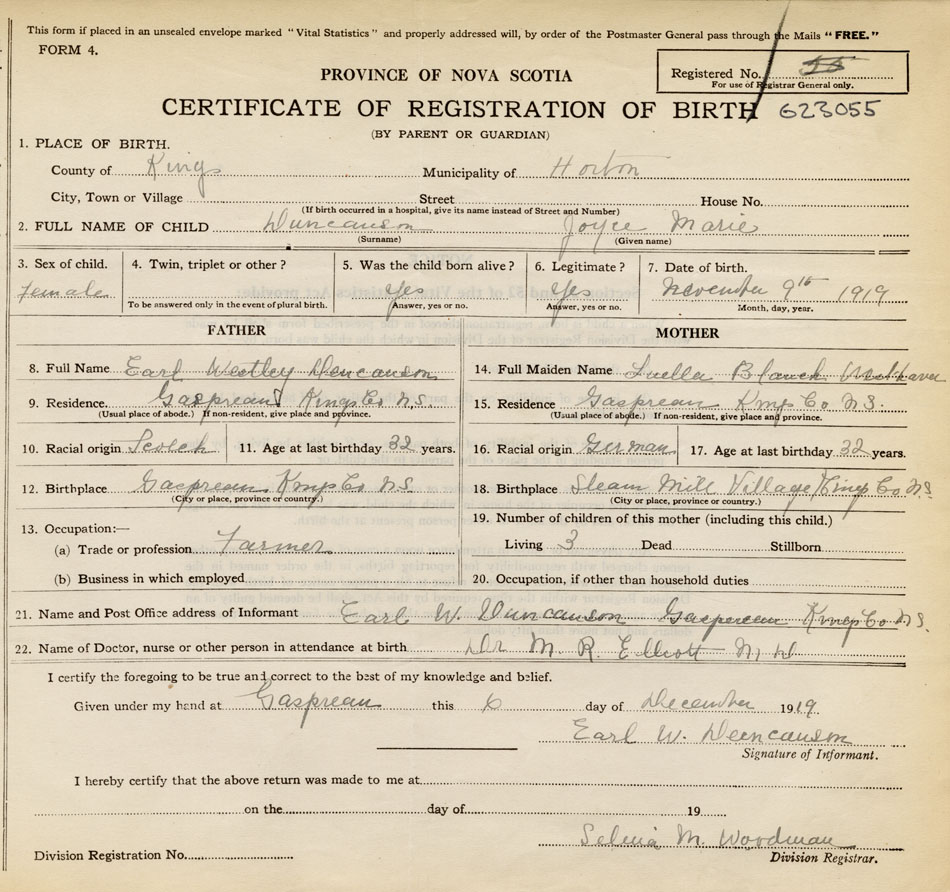 This form if placed in an unsealed envelope marked "Vital Statistics" and properly addressed will, by order of the Postmaster General pass through the Mails "FREE."
FORM 4.
Registered No. 55
For use of Registrar General only.
PROVINCE OF NOVA SCOTIA
CERTIFICATE OF REGISTRATION OF BIRTH 623055
(BY PARENT OR GUARDIAN)
1. PLACE OF BIRTH.
County of Kings Municipality of Horton
City, Town or Village Street House No.
(If birth occurred in a hospital, give its name instead of Street and Number)
2. FULL NAME OF CHILD Duncanson Joyce Marie
(Surname) (Given name)
3. Sex of child. 4. Twin, triplet or other? 5. Was the child born alive? 6. Legitimate? 7. Date of birth.
female Yes Yes November 9th 1919
To be answered only in the event of plural birth. Answer, yes or no. Answer, yes or no. Month, day, year.
FATHER MOTHER
8. Full Name Earl Westley Duncanson 14. Full Maiden Name Luella Blanch
9. Residence. Gaspreau Kings Co N.S. 15. Residence Gaspreau Kings Co N S.
(Usual place of abode.) If non-resident, give place and province. (Usual place of abode.) If non-resident, give place and province.
10. Racial origin Scotch 11. Age at last birthday 32 years. 16. Racial origin German 17. Age at last birthday 32 years.
12. Birthplace Gaspreau Kings Co N.S. 18. Birthplace Steam Mill Village Kings Co N S
(City or place, province or country.) (City or place, province or country.)
13. Occupation:— 19. Number of children of this mother (including this child.)
(a) Trade or profession Farmer Living 3 Dead Stillborn
(b) Business in which employed 20. Occupation, if other than household duties
21. Name and Post Office address of Informant Earl W. Duncanson Gaspereau Kings Co N S.
22. Name of Doctor, nurse or other person in attendance at birth Dr M. R. Elliott M. D
I certify the foregoing to be true and correct to the best of my knowledge and belief.
Given under my hand at Gaspreau this 6 day of December 1919.
Earl W. Duncanson
Signature of Informant.
I hereby certify that the above return was made to me at
on the day of 19
Selina M. Woodman
Division Registration No. Division Registrar.